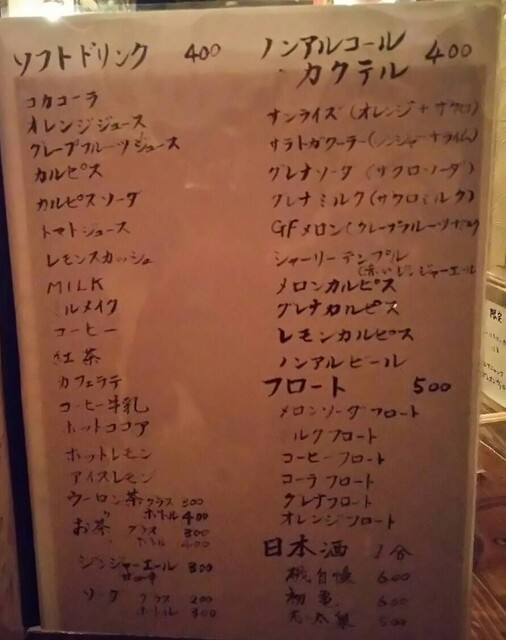 ソフトドリンク 400
コカコーラ
オレンジジュース
グレープフルーツジュース
カルピス
カルピスソーダ
トマトジュース
レモンスカッシュ
MILK
ミルメイク
コーヒー
紅茶
カフェラテ
コーヒー牛乳
ホットココア
ホットレモン
アイスレモン
ウーロン茶 グラス 300
〃 ボトル 400
お茶 グラス 300
〃 ボトル 400
ジンジャーエール 300
ソーダ グラス 200
ボトル 300
ノンアルコール
・カクテル 400
サンライズ(オレンジ+ザクロ)
サラトガクーラー(ジンジャーライム)
グレナソーダ (ザクロソーダ)
グレナミルク(ザクロミルク)
GFメロン(グレープフルーツ
シャーリーテンプル
(赤いジンジャーエール
メロンカルピス
グレナカルピス
レモンカルピス
ノンアルビール
フロート 500
メロンソーダフロート
ミルクフロート
コーヒーフロート
コーラフロート
グレナフロート
オレンジフロート
日本酒 1合
磯自慢 600
初亀 600
500
限定